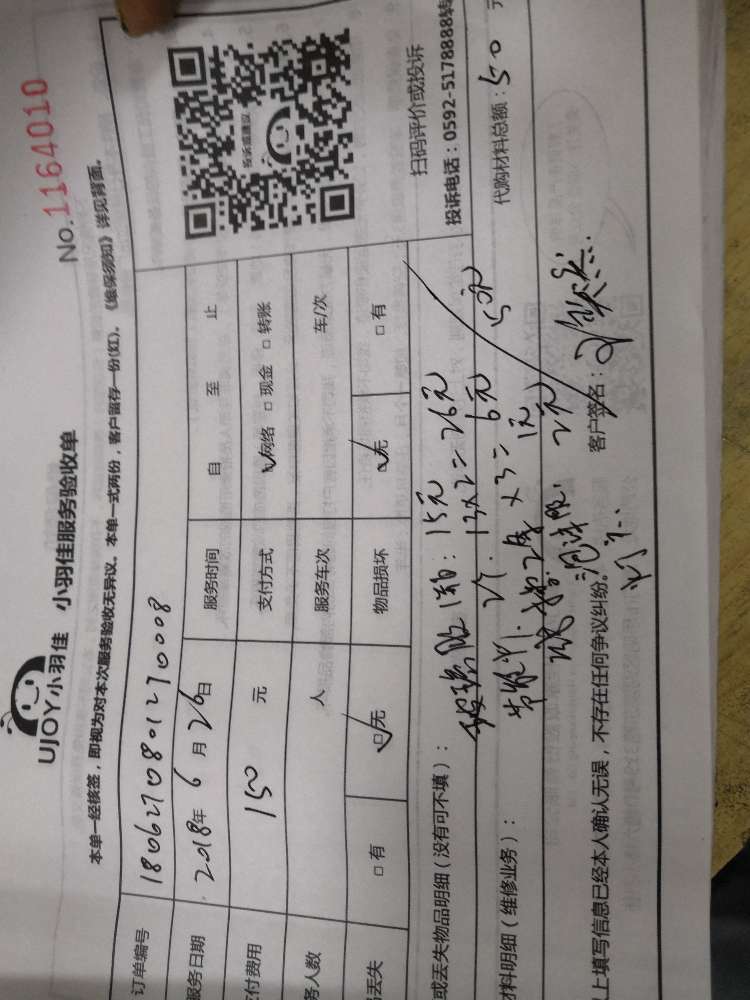 UJOY小羽佳 小羽佳服务验收单
No.1164010
本单一经核签，即视为对本次服务验收无异议。本单一式两份，客户留存一份(红)。《维保须知》详见背面。
订单编号 1806270801270008
服务日期 2018年 6 月 26 日 服务时间 自 至 止
付费用 150 元 支付方式 ☑网络 □现金 □转账
务人数 人 服务车次 车/次
丢失 □有 ☑无 物品损坏 ☑无 □有
投诉或建议
扫码评价或投诉
投诉电话：0592-5178888转
或丢失物品明细（没有可不填）： 玻璃胶1泊：15元
13x2=26元
材料明细（维修业务）： x3=6元 50元
1元
2元
代购材料总额：50 元
上填写信息已经本人确认无误，不存在任何争议纠纷。 客户签名：